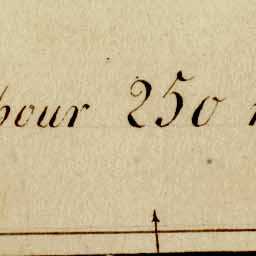 hour 250